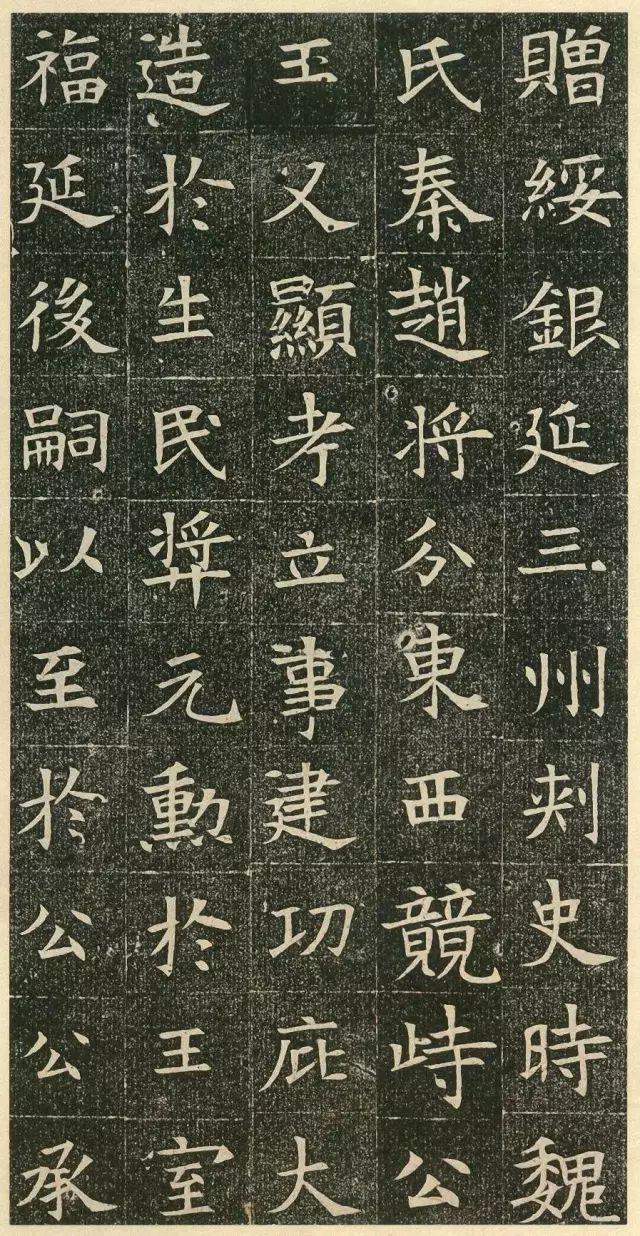 贈綏銀延三州刾史時魏
氏秦趙将分東西競峙公
玉又顯考立事建功庇大
造於生民弉元勳於王室
福延後嗣以至於公公承